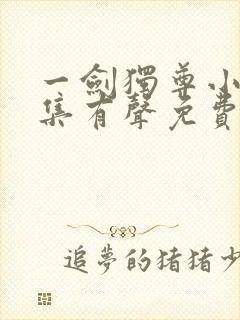 一劍獨尊小
集有聲免費
追夢的豬豬少